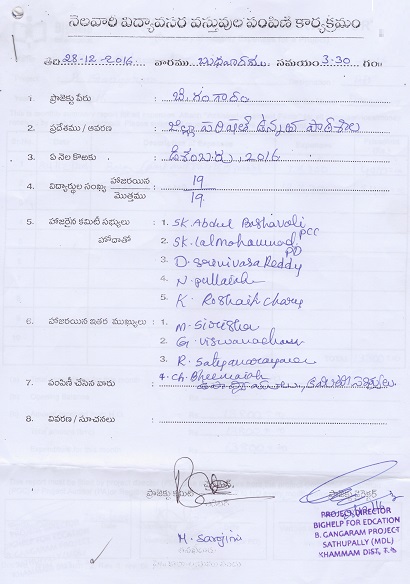 నెలవారి విద్యావసర వస్తువుల పంపిణీ కార్యక్రమం
తేది 28-12-2016 వారము బుధవారము సమయం 3-30 గం॥
1. ప్రాజెక్టు పేరు : బి. గంగారం
2. ప్రదేశము / ఆవరణ : జిల్లా పరిషత్ ఉన్నత పాఠశాల
3. ఏ నెల కొఱకు : డిశంబరు, 2016
4. విద్యార్థుల సంఖ్య హాజరయిన / మొత్తము : 19 / 19
5. హాజరైన కమిటీ సభ్యులు : 1. SK. Abdul Bashavali PCC
హోదాతో 2. SK. Lalmohammad PD
3. D. Srinivasa Reddy
4. N. pullaiah
5. K. Roshaih Chary
6. హాజరయిన ఇతర ముఖ్యులు : 1. M. Sirisha
2. G. Viswanadham
3. R. Satyanarayana
4. Ch. Bheemaiah
7. పంపిణీ చేసిన వారు : కమిటీ సభ్యులు
8. వివరణ / సూచనలు :
ప్రాజెక్టు కమిటీ
ప్రాజెక్టు డైరెక్టర్
M. Sarojini
PROJECT DIRECTOR
BIGHELP FOR EDCATION
B. GANGARAM PROJECT
SATHUPALLY (MDL)
KHAMMAM DIST, T.S